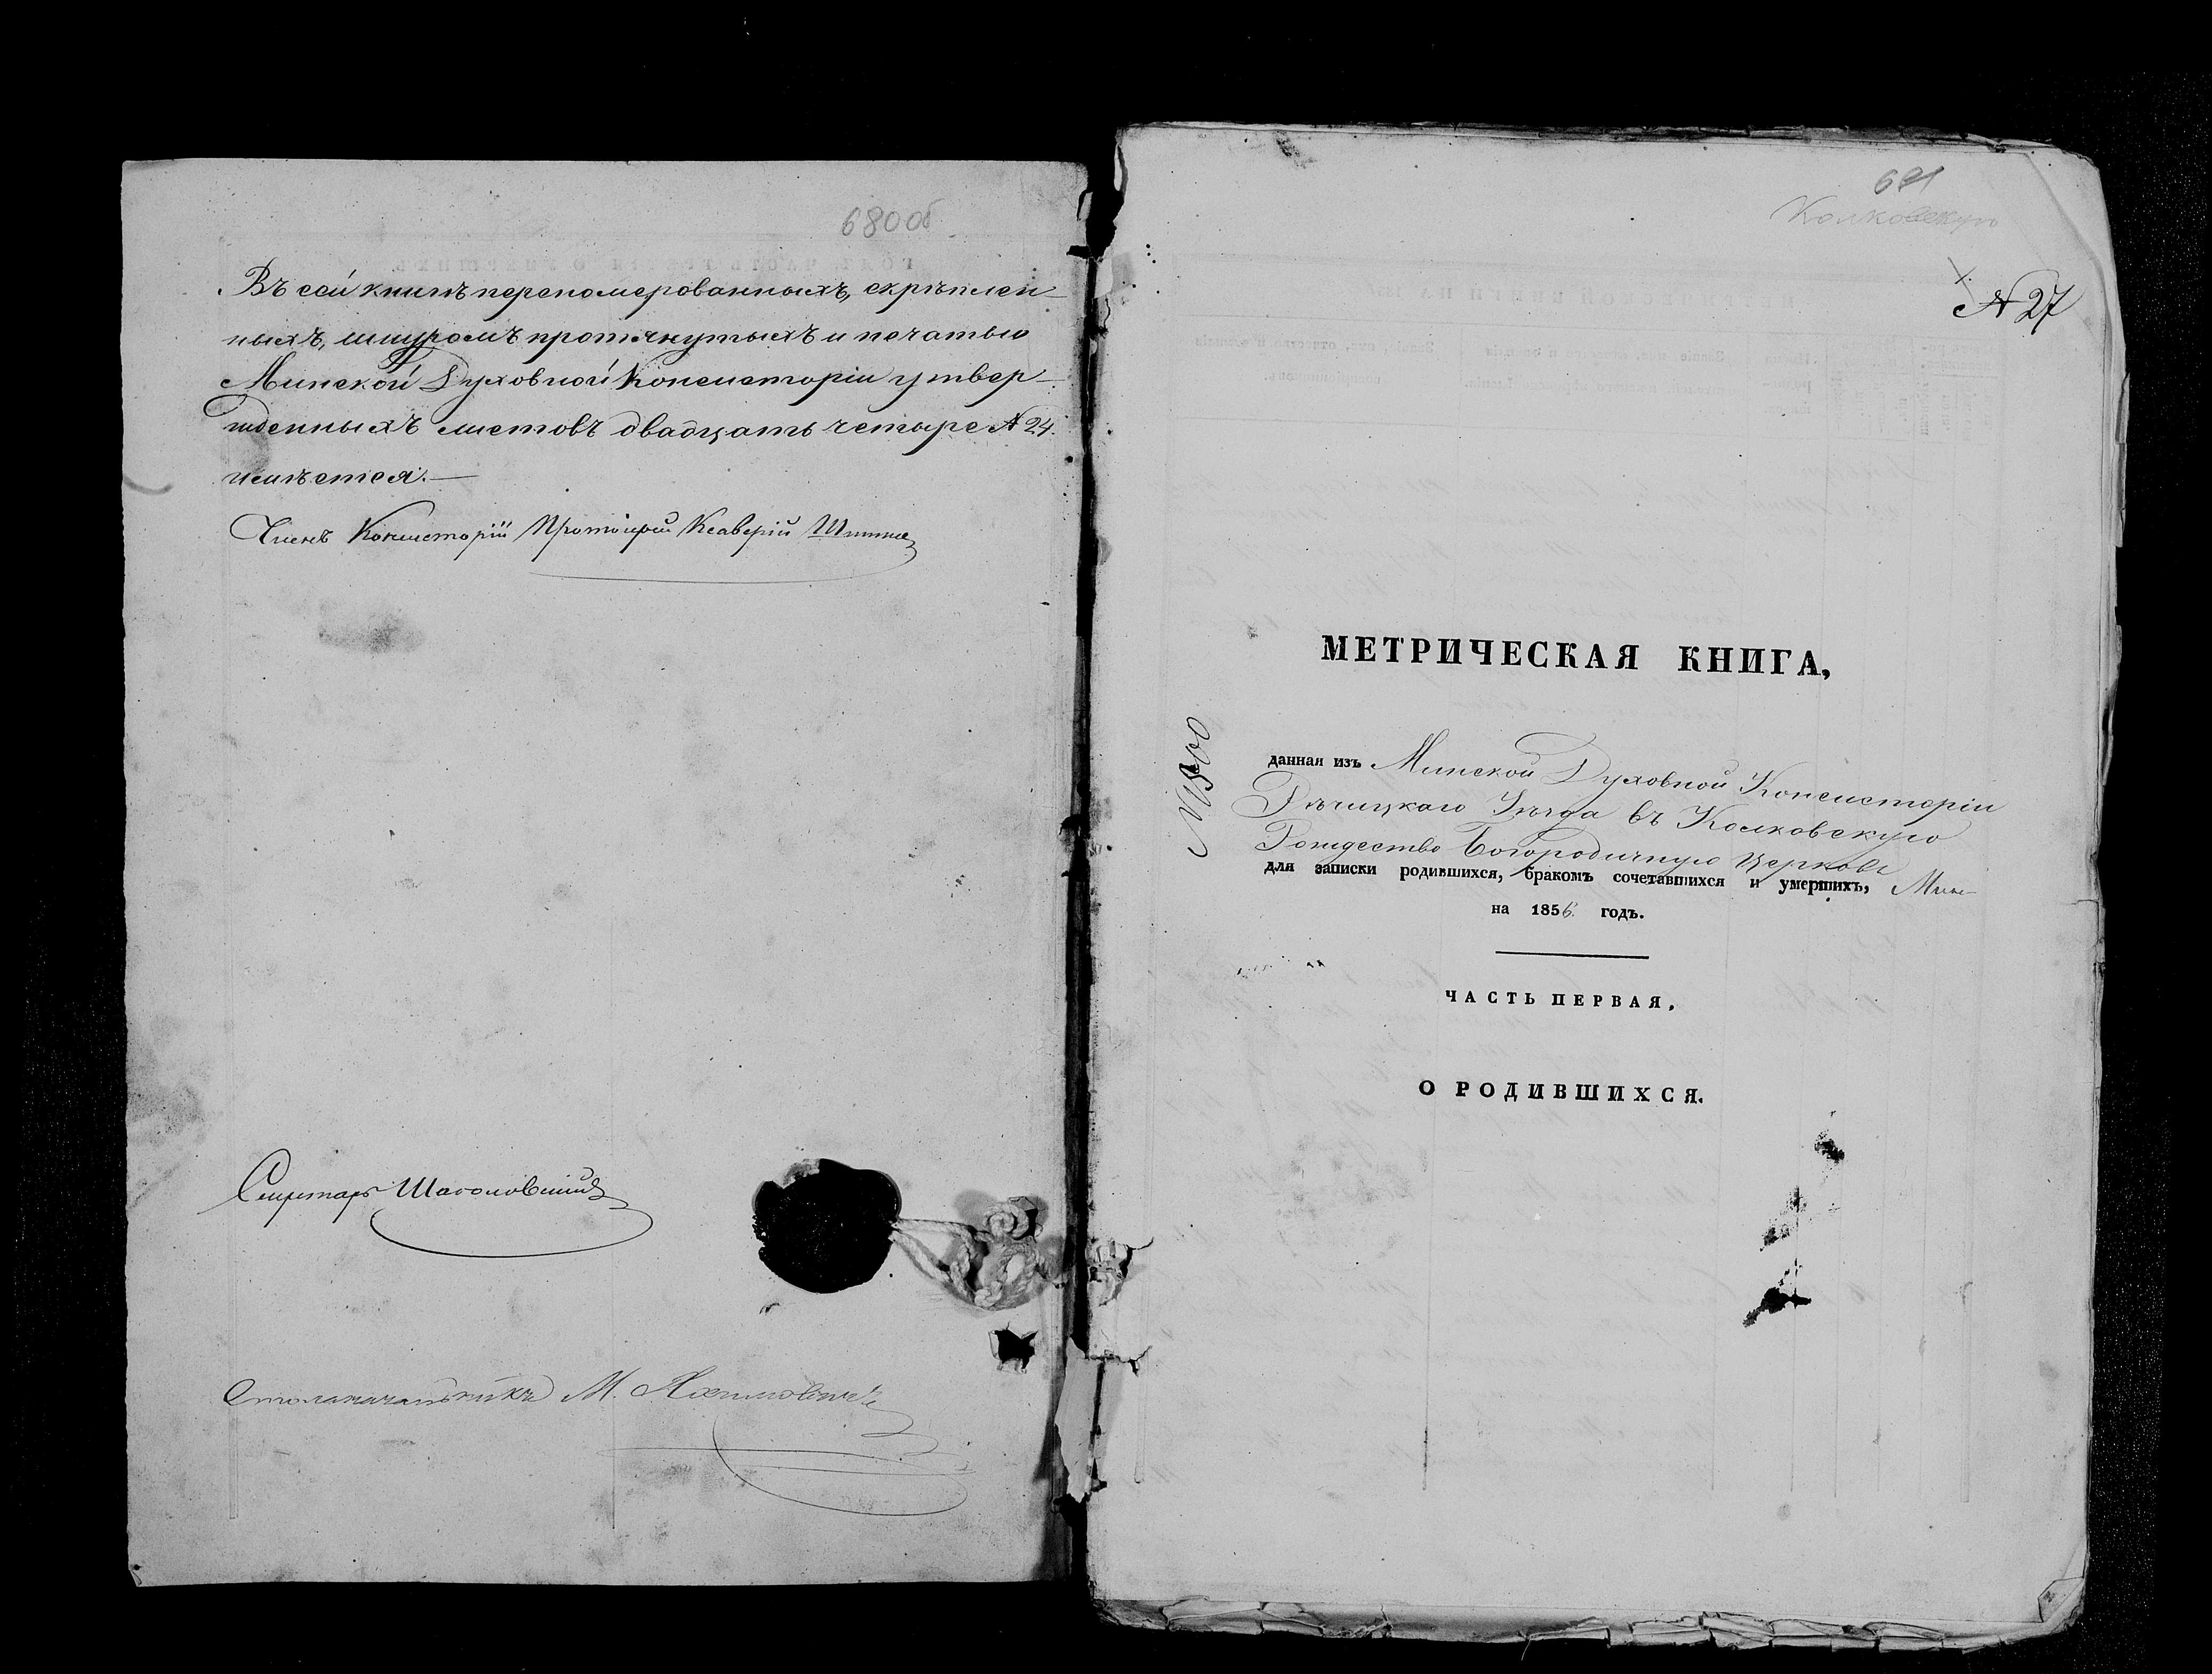 680об
Въ сей книгѣ перепомерованныхъ, скрѣплен-
ныхъ, шнуромъ протянутыхъ и печатью
Минской Духовной Консисторіи утвер-
жденныхъ листовъ двадцать четыре № 24.
имѣется.—
Членъ Консисторіи Протоіерей Ксаверій
Секретарь
Столоначальникъ М.
Колковскую
№ 27
МЕТРИЧЕСКАЯ КНИГА,
данная изъ Минской Духовной Консисторіи
Рѣчицкаго Уѣзда въ Колковскую
Рождество Богородичную Церковь
для записки родившихся, бракомъ сочетавшихся и умершихъ,
на 1856. годъ.
ЧАСТЬ ПЕРВАЯ.
О РОДИВШИХСЯ.